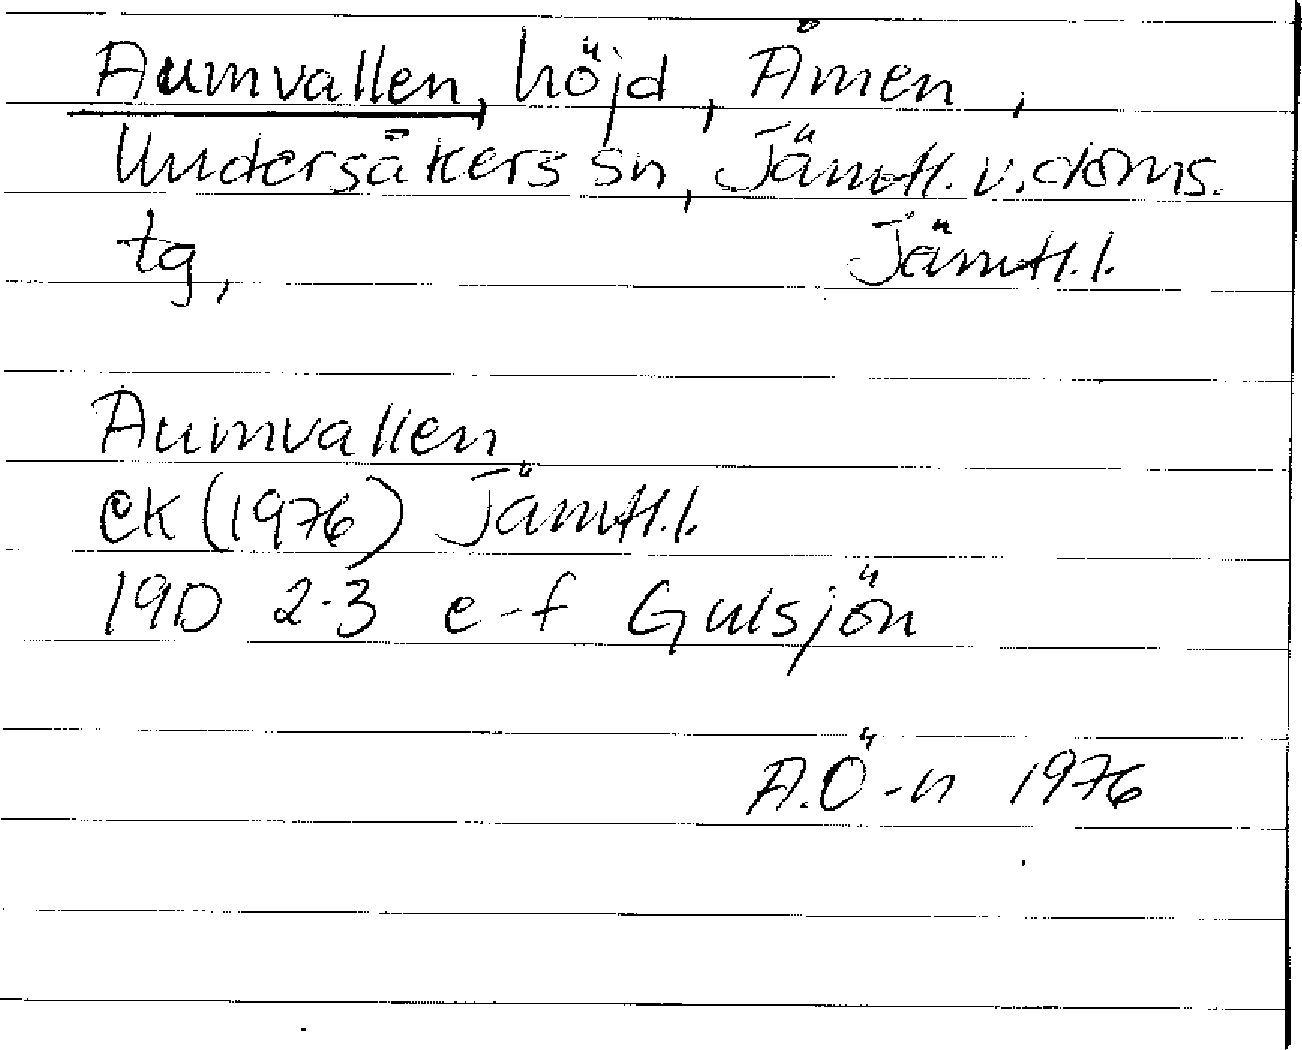 Aumvallen, höjd, Åmen,
Undersåkers sn, Jämtl. v. doms.
tg, Jämtl. l.
Aumvallen
ek (1976) Jämtl. l.
19D 2-3 e-f Gulsjön
A.Ö-n 1976